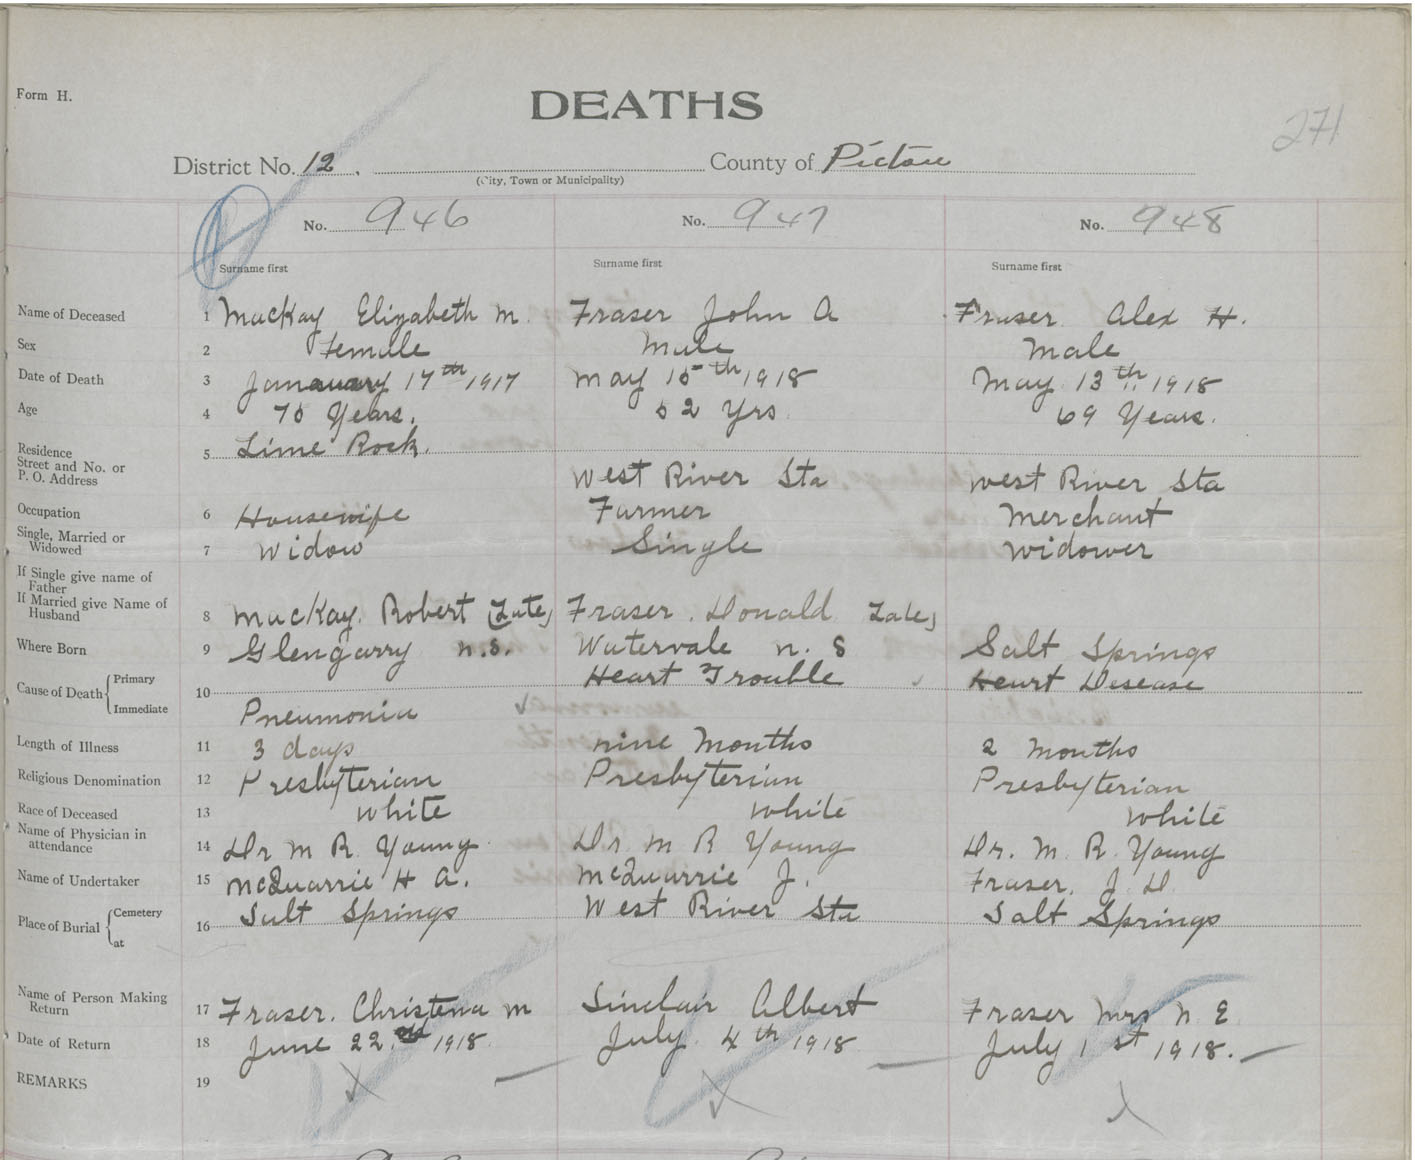 Form H.
DEATHS
271
District No. 12. County of Pictou
(City, Town or Municipality)
No. 946 No. 947 No. 948
Surname first Surname first Surname first
Name of Deceased 1 MacKay Elizabeth M. Fraser John A Fraser Alex H.
Sex 2 Female Male Male
Date of Death 3 January 17th 1917 May 15th 1918 May 13th 1918
Age 4 75 Years. 52 Yrs 69 Years.
Residence Street and No. or P. O. Address 5 Lime Rock. West River Sta West River Sta
Occupation 6 Housewife Farmer Merchant
Single, Married or Widowed 7 Widow Single Widower
If Single give name of Father
If Married give Name of Husband 8 MacKay. Robert (Late) Fraser. Donald Late)
Where Born 9 Glengarry N.S. Watervale N. S Salt Springs
Cause of Death { Primary 10 Heart Trouble Heart Disease
Immediate Pneumonia
Length of Illness 11 3 days nine Months 2 Months
Religious Denomination 12 Presbyterian Presbyterian Presbyterian
Race of Deceased 13 White White White
Name of Physician in attendance 14 Dr M R. Young Dr M R Young Dr. M. R. Young
Name of Undertaker 15 McQuarrie H A. McQuarrie J. Fraser. J. D
Place of Burial { Cemetery at 16 Salt Springs West River Sta Salt Springs
Name of Person Making Return 17 Fraser. Christena M Sinclair Albert Fraser Mrs N E
Date of Return 18 June 22nd 1918 July 4th 1918 July 1st 1918.
REMARKS 19